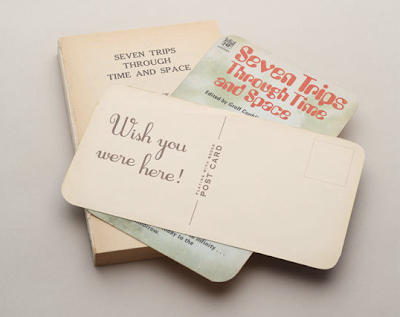 SEVEN TRIPS
THROUGH
TIME AND SPACE
Seven Trips
Through Time
and Space
Edited by Groff
Wish you
were here!
POST CARD
infinity...
to the